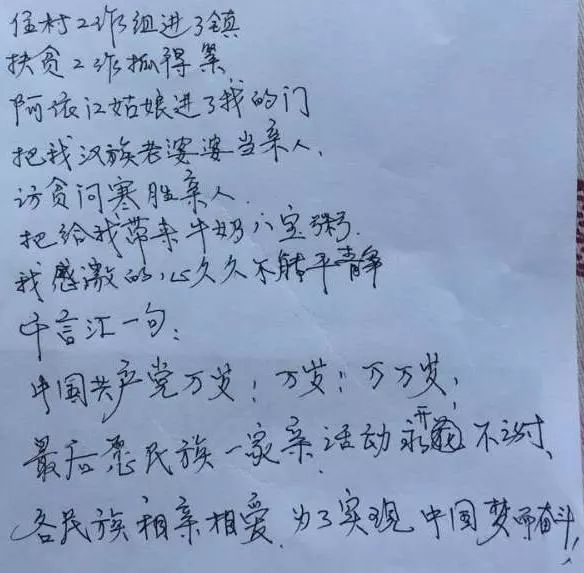 住村工作组进了镇
扶贫工作抓得紧
阿依江姑娘进了我的门
把我汉族老婆婆当亲人,
访贫问寒胜亲人.
把给我带来牛奶八宝粥.
我感激的心久久不能平静
千言汇一句:
中国共产党万岁!万岁!!万万岁!
最后愿民族一家亲活动永开花不谢、
各民族相亲相爱.为了实现中国梦而奋斗!